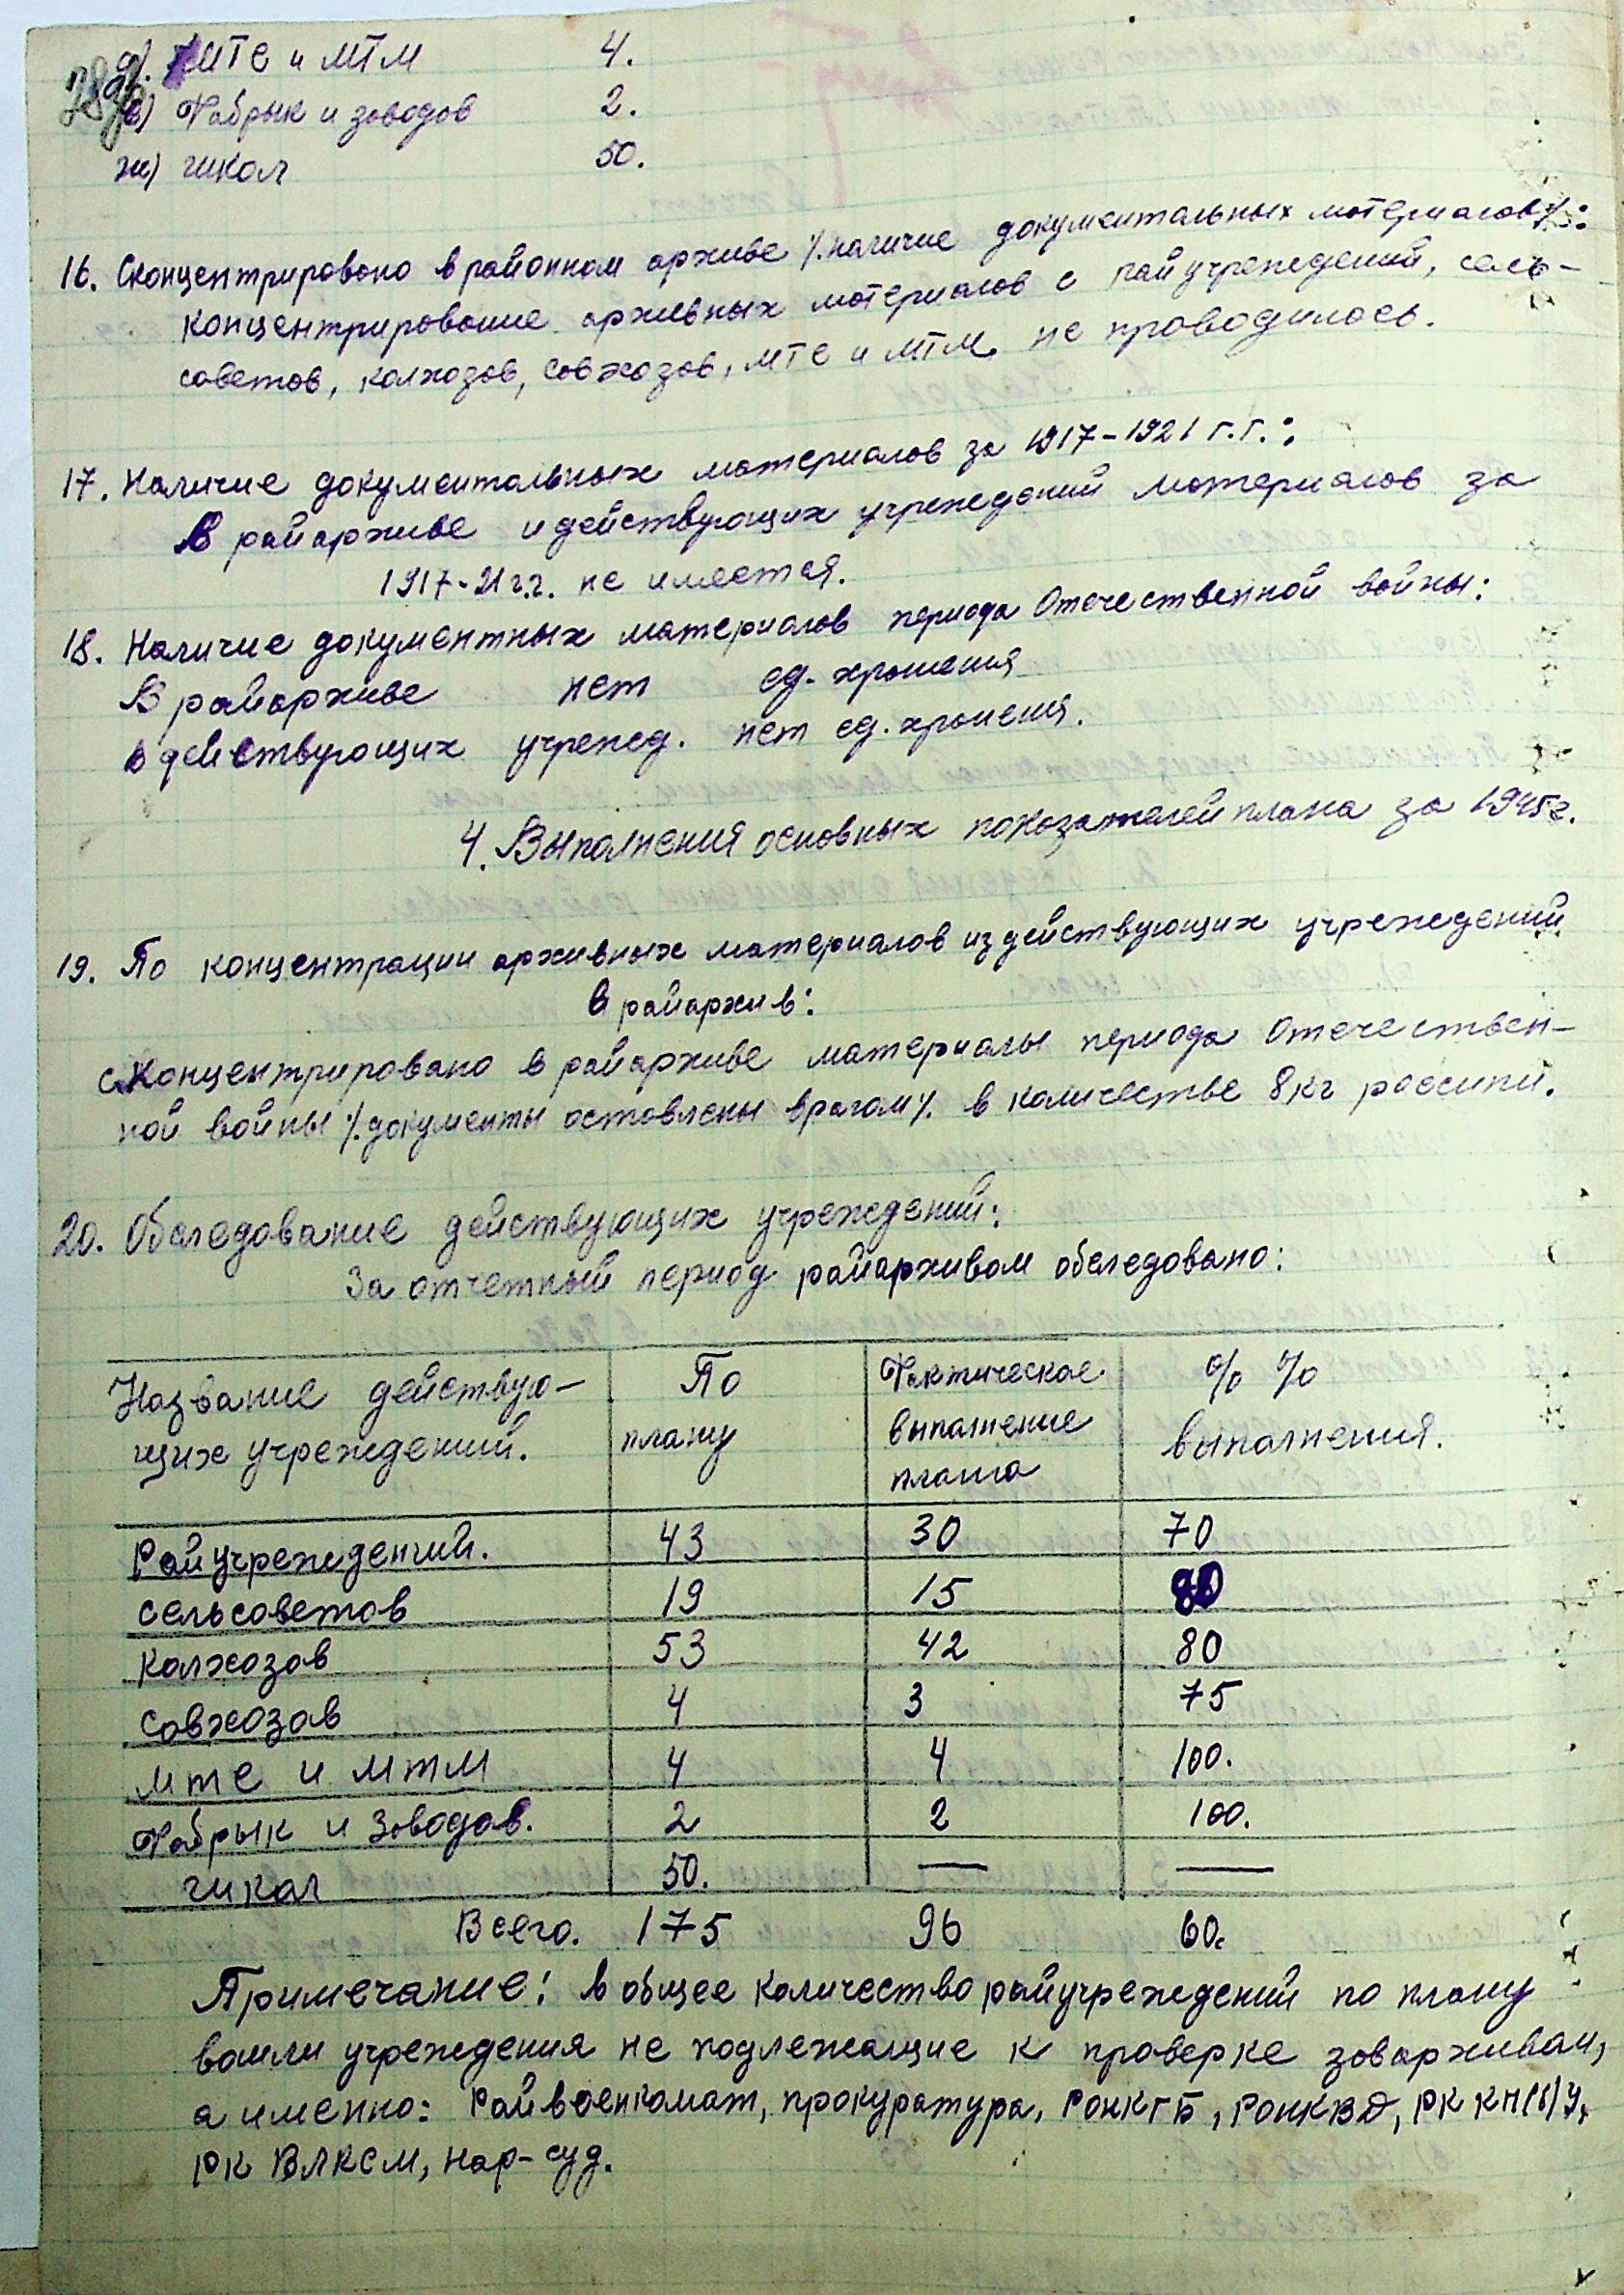 д). МТС и МТМ 4.
е) Фабрык и заводов 2.
ж) школ 50.
16. Сконцентрировано в районном архиве /.наличие документальных материалов/.:
концентрирование архивных материалов с райучреждений, сель-
советов, колхозов, совхозов, МТС и МТМ. не проводилось.
17. Наличие документальных материалов за 1917-1921 г.г.:
В райархиве и действующих учреждений материалов за
1917-21 г.г. не имеется.
18. Наличие документных материалов периода Отечественной войны:
В райархиве нет ед. хранения
в действующих учрежд. нет ед. хранения.
4. Выполнения основных показателей плана за 1945 г.
19. По концентрации архивных материалов из действующих учреждений
в райархив:
сконцентрировано в райархиве материалы периода Отечествен-
ной войны /.документы оставлены врагом/. в количестве 8 кг россипи.
20. Обследование действующих учреждений:
За отчетный период райархивом обследовано:
Название действую- По Фактическое % %
щих учреждений. плану выполнение выполнения.
плана
Райучреждений. 43 30 70
сельсоветов 19 15 80
Колхозов 53 42 80
Совхозов 4 3 75
МТС и МТМ 4 4 100.
Фабрык и Заводов. 2 2 100.
школ 50. — —
Всего. 175 96 60.
Примечание: в общее количество райучреждений по плану
вошли учреждения не подлежащие к проверке
а именно: Райвоенкомат, прокуратура, РОНКГБ, РОНКВД, РК КП(б)У,
РК ВЛКСМ, нар-суд.